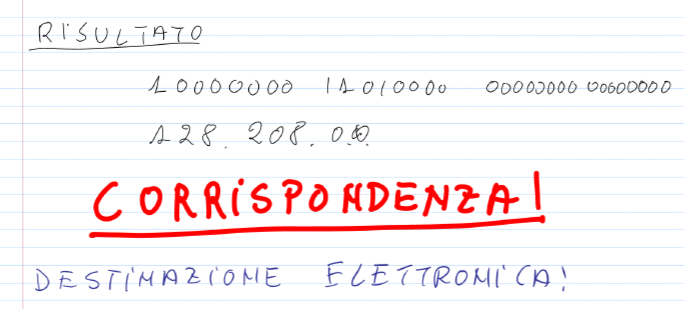 RISULTATO
10000000 11010000 00000000 00000000
128. 208. 0.0.
CORRISPONDENZA!
DESTINAZIONE ELETTRONICA!